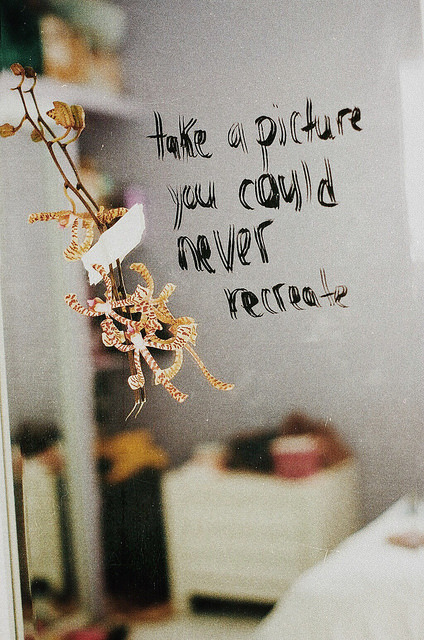 take a picture
you could
never
recreate